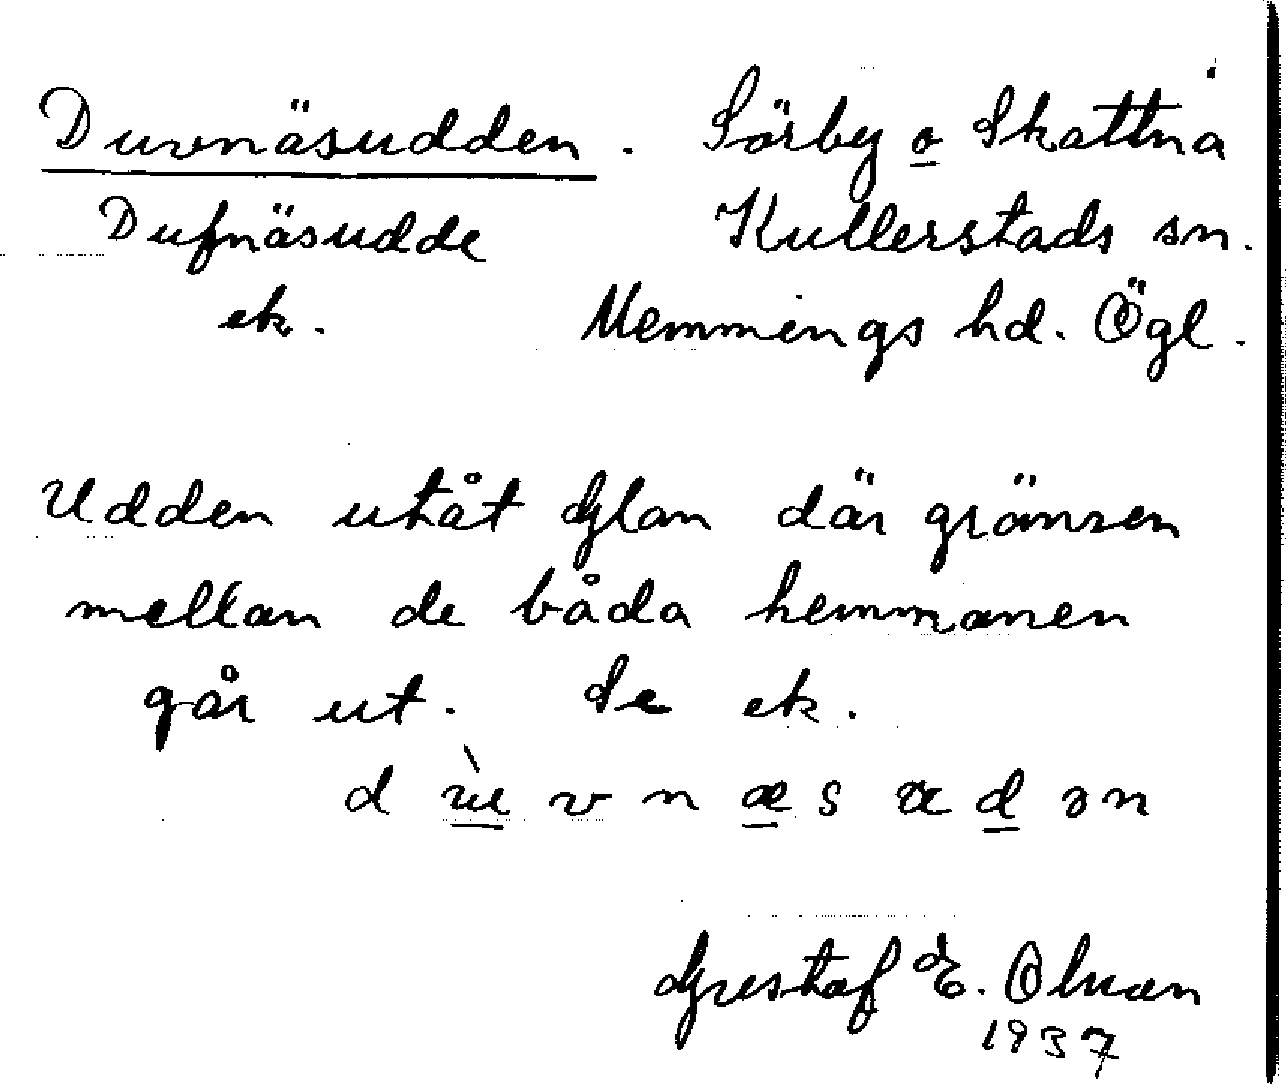 Duvnäsudden. Sörby o Skattna
Dufnäsudde Kullerstads sn.
ek. Memmings hd. Ögl.
Udden utåt Glan där gränsen
mellan de båda hemmanen
går ut. Se ek.
Gustaf E. Olman
1937